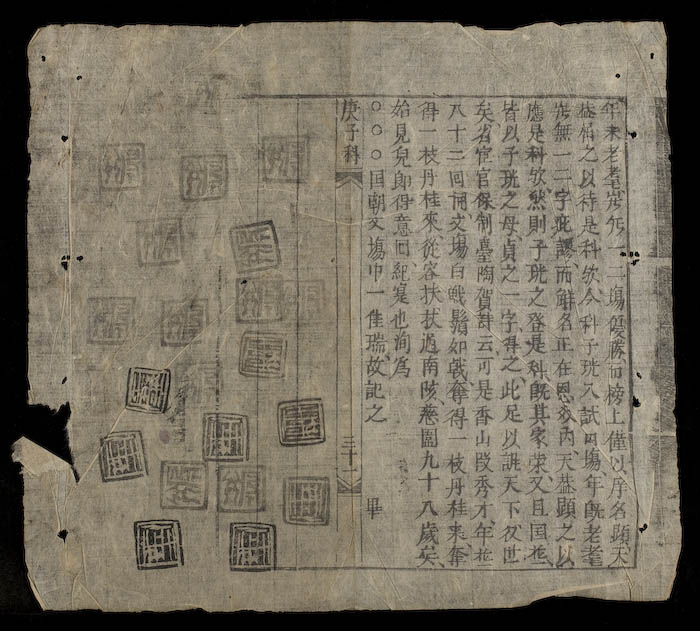 年來老耄安能一二塲優勝而榜上僅以序名顕天
益之以待是科欤今科子珖入試四塲年既老耄
無一二字疵謬而觧名正在恩内天益顕之以
應是科欤然則子珖之登是科既其家荣又且国
皆以子珖之母貞之一字得之此足以天下後世
矣省宦官保制臺陶賀詩云可是香山段秀才年
八十三回文塲白戰鬚如戟奪得一枝丹桂来奪
得一枝丹桂来從容扶杖過南陔慈闈九十八歲矣
始見兒郎得意回紀寔也洵為
○○○国朝文塲中一佳瑞故記之 畢
庚子科 三十一